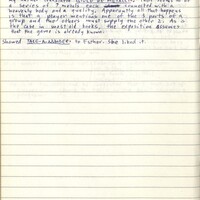 a series of 7 metals, each connected with a
heavenly body and a quality. Apparently all that happens
is that a player mentions one of the 3 parts of a
group and that others must supply the other 2. As is
the case in most old books, the exposition assumes
that the game is already known.
Showed TAKE-A-NUMBER to Esther. She liked it.